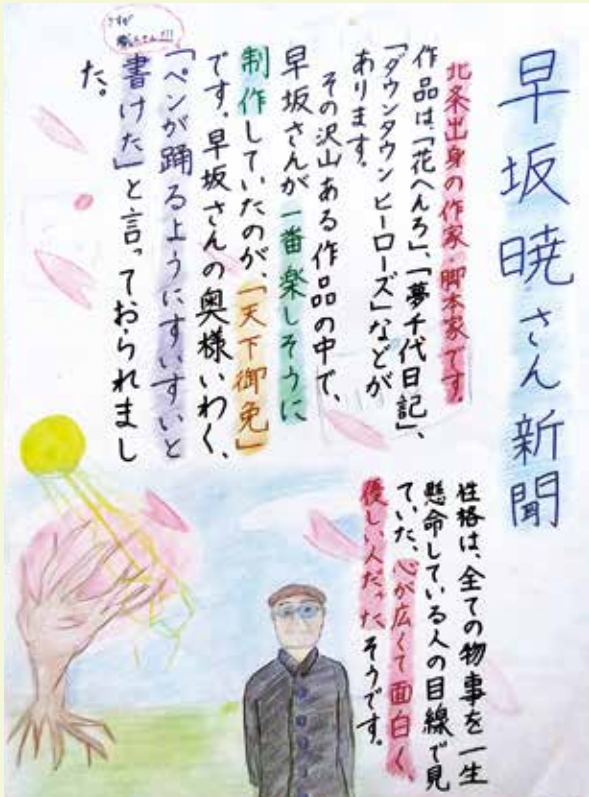 早坂暁さん新聞
北条出身の作家・脚本家です。
作品は、「花へんろ」、「夢千代日記」、
「ダウンタウンヒーローズ」などが
あります。
その沢山ある作品の中で、
早坂さんが一番楽しそうに
制作していたのが、「天下御免」
です。早坂さんの奥様いわく、
「ペンが踊るようにすいすいと
書けた」と言っておられまし
た。
さすが
性格は、全ての物事を一生
懸命している人の目線で見
ていた、心が広くて面白く、
優しい人だったそうです。